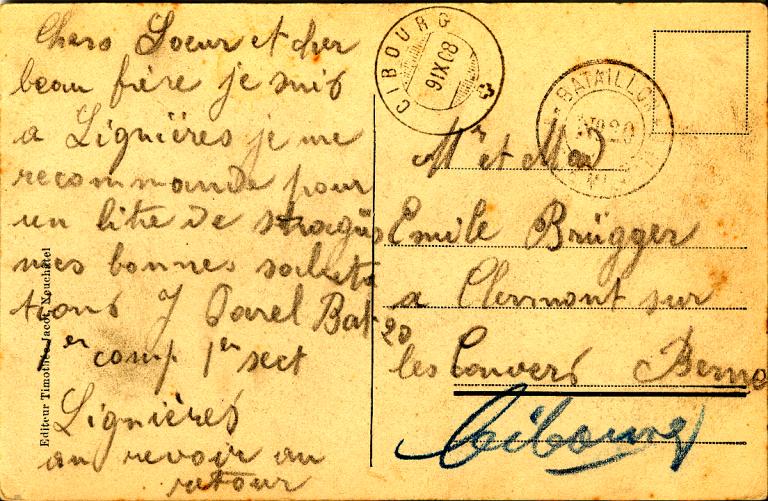 Chers Soeur et cher
beau frère je suis
a Lignières je me
recommande pour
un litre de
mes bonnes saluta
tions J Parel Bat 20
1er comp 1er sect
Lignières
au revoir au
retour
Editeur Timothée Jacot, Neuchâtel
CIBOURG
9 IX 08
BATAILLON
No 20
Mr et Mad
Emile Brügger
a Clermont sur
les Convers Berne
Cibourg